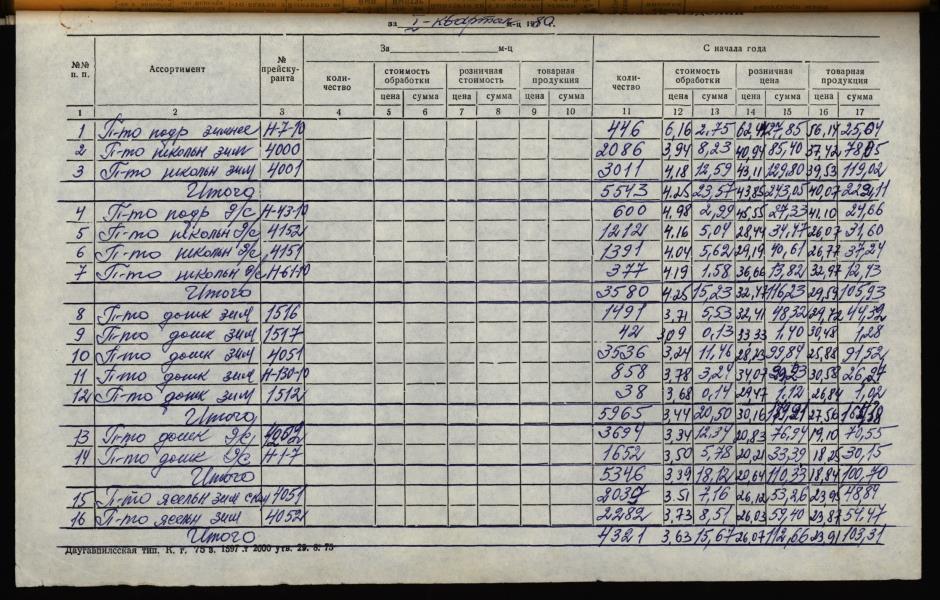 за I-квартал м-ц 1980г.
№№ п. п. Ассортимент № прейску-ранта За м-ц С начала года
коли-чество стоимость обработки розничная стоимость товарная продукция коли-чество стоимость обработки розничная цена товарная продукция
цена сумма цена сумма цена сумма цена сумма цена сумма цена сумма
1 2 3 4 5 6 7 8 9 10 11 12 13 14 15 16 17
1 П-то подр зимнее Н-7-10 446 6,16 2,75 56,14
2 П-то школьн зим 4000 2086 3,94 8,23 40,94 85,40 37,42
3 П-то школьн зим 4001 3011 4,18 12,59 43,11 129,80 39,53 119,02
Итого 5543 4.25 23,57 43,85 243,05 40,07
4 П-то подр д/с Н-43-10 600 4.98 2,99 45,55 27,33 41,10 24,66
5 П-то школьн д/с 4152 1212 4,16 5,04 28,44 34,47 26,07 31,60
6 П-то школьн д/с 4151 1391 4.04 5,62 29,19 40,61 26,77 37,24
7 П-то школьн д/с Н-61-10 377 4,19 1.58 36,66 13,82 32,97 12,43
Итого 3580 4.25 15,23 32,47 116,23 29,59 105,93
8 П-то дошк зим 1516 1491 3,71 5,53 32,41 48,32 29,72
9 П-то дошк зим 1517 42 3,09 0,13 33.33 1,40 30,48 1,28
10 П-то дошк зим 4051 3536 3,24 11,46 28,23 99,84 25,88 91,52
11 П-то дошк зим Н-130-10 858 3,78 3,24 34,07 30,58
12 П-то дошк зим 1512 38 3,68 0,14 29,47 1,12 26,84 1,02
Итого 5965 3,44 20,50 30,16 27,56
13 П-то дошк д/с 3694 3,34 12,34 20,83 76,94 19,10 70,55
14 П-то дошк д/с Н-1-7 1652 3,50 5,78 20,21 33,39 18,25 30,15
Итого 5346 3.39 18,12 20,64 110,33 18,84 100,70
15 П-то ясельн зим 4051 2039 3.51 7,16 26,12 53,26 23,95 48,84
16 П-то ясельн зим 4052 2282 3,73 8,51 26,03 59,40 23,87 54,47
Итого 4321 3,63 15,67 26,07 112,66 23,91 103,31
Даугавпилсская тип. К. г. 75 з. 1597 т 2000 утв. 29. 8. 75